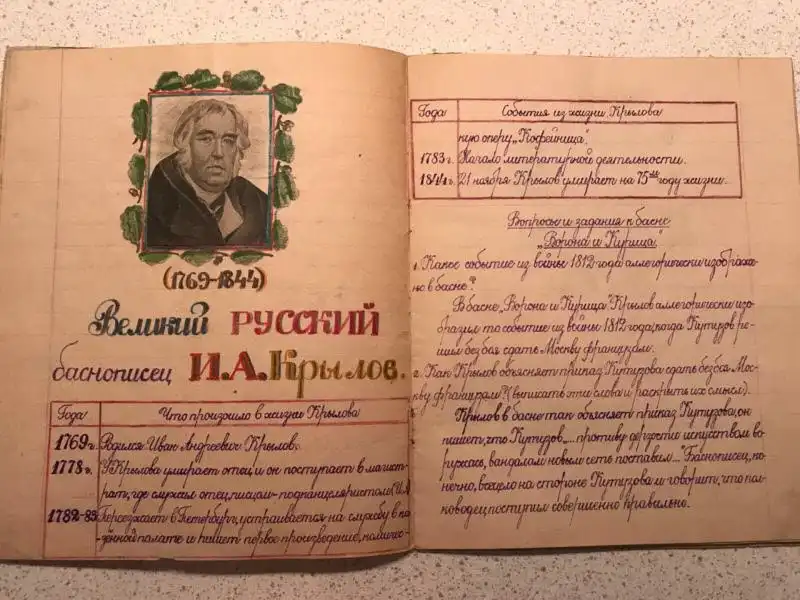 (1769-1844)
Великий РУССКИЙ
баснописец И.А.Крылов.
Года Что произошло в жизни Крылова
1769г. Родился Иван Андреевич Крылов.
1778г. У Крылова умирает отец, и он поступает в магист-
рат, где служил отец, писцом-подканцеляристом
1782-83 Переезжает в Петербург, устраивается на службу в ка
зённой палате и пишет первое произведение, комичес-
Года События из жизни Крылова
кую оперу „Кофейница".
1783г. Начало литературной деятельности.
1844г. 21 ноября Крылов умирает на 75ом году жизни.
Вопросы и задания к басне
„Ворона и Курица".
1. Какое событие из войны 1812 года аллегорически изображе-
но в басне?
В басне „Ворона и Курица" Крылов аллегорически изо-
бразил то событие из войны 1812 года, когда Кутузов ре-
шил без боя сдать Москву французам.
2. Как Крылов объясняет приказ Кутузова сдать без боя Мос-
кву французам? (выписать эти слова и раскрыть их смысл).
Крылов в басне так объясняет приказ Кутузова, он
пишет, что Кутузов „... противу дерзости искусством во
ружась, вандалам новым сеть поставил..." Баснописец, ко-
нечно, всецело на стороне Кутузова и говорит, что пол-
ководец поступил совершенно правильно.